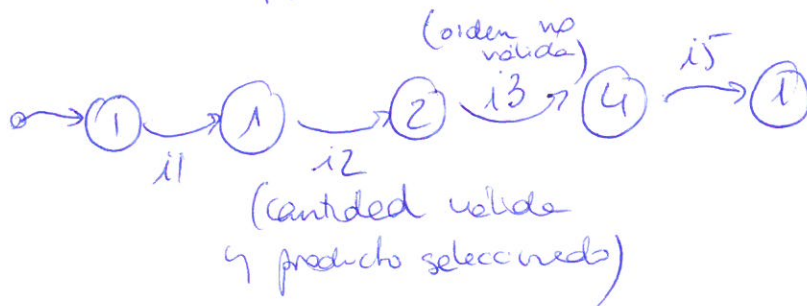 (orden no
válida)
1 i1 1 i2 2 i3 4 i5 1
(cantidad válida
y producto seleccionado)